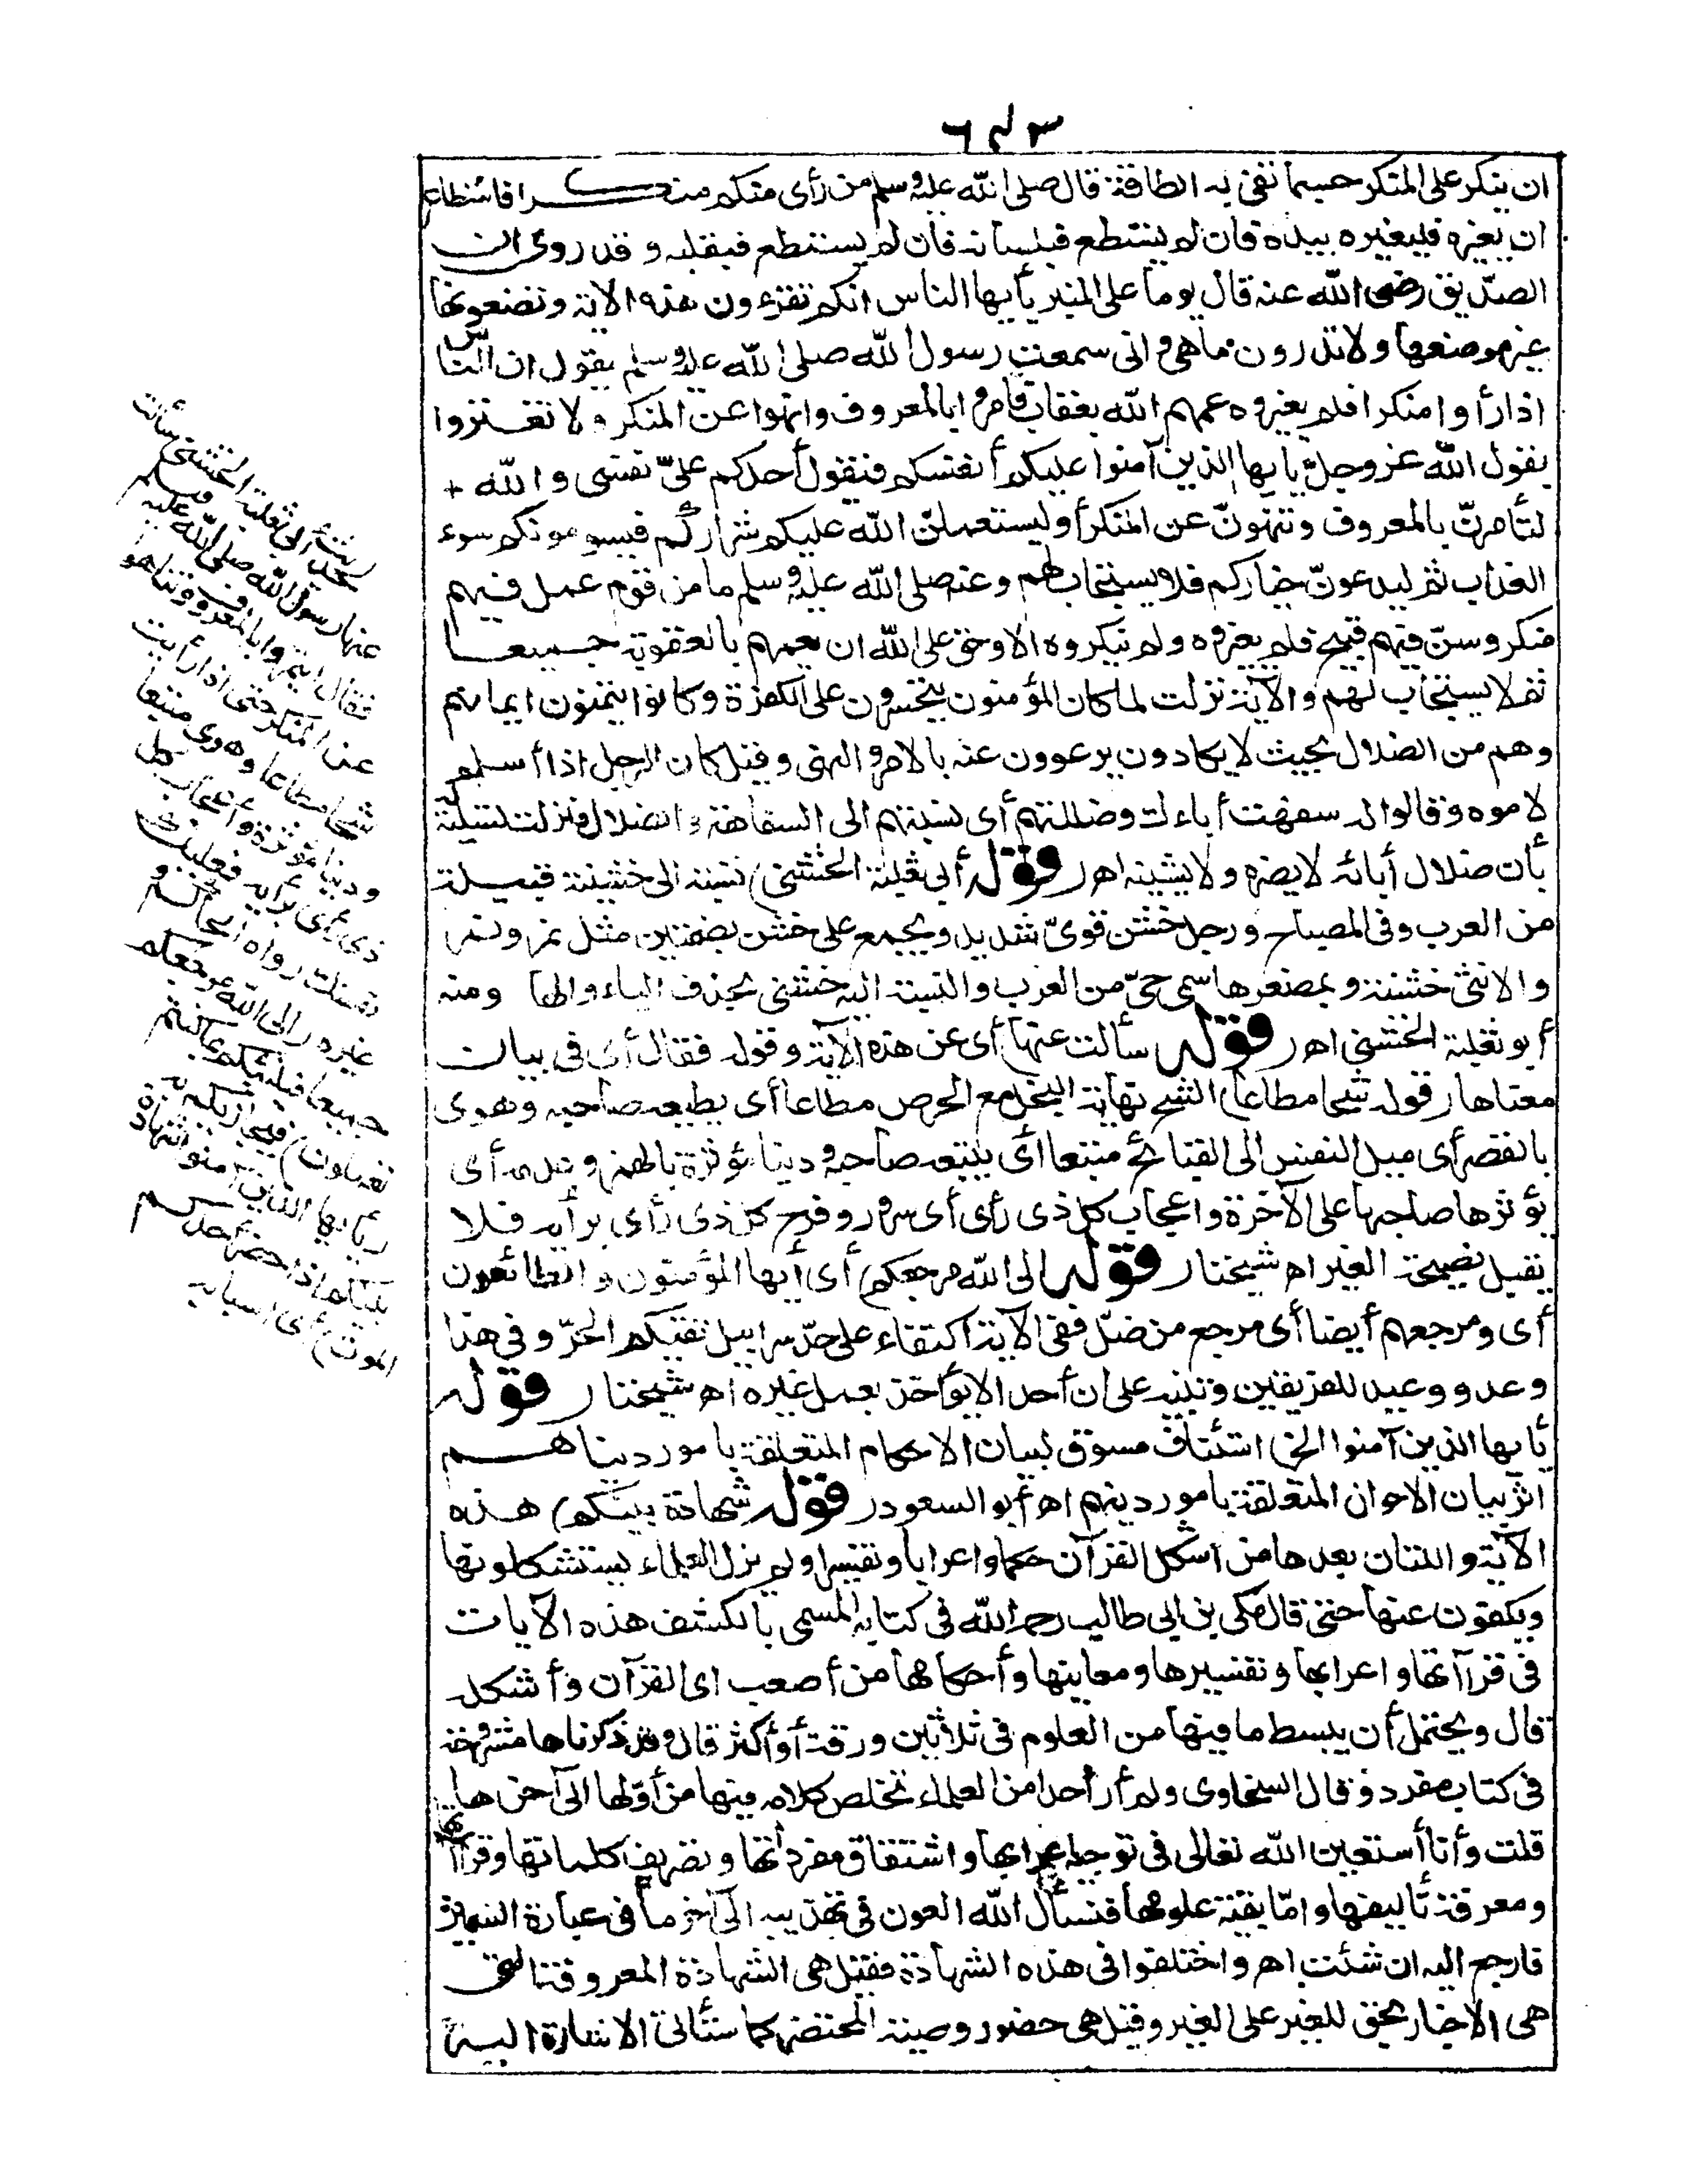 ٦٤٣
ان ينكر على المنكر حسبما تفى به الطاقة قال صلى الله عليه وسلم من رأى منكم منكرا فاستطاع
ان يغيره فليغيره بيده فان لم يستطع فبلسانه فان لم يستطع فبقلبه وقد روى ان
الصدّيق رضى الله عنه قال يوما على المنبر يأيها الناس انكم تقرءون هذه الاية وتضعونها
غير موضعها ولا تدرون ما هى وانى سمعت رسول الله صلى الله عليه وسلم يقول ان الناس
اذا رأوا منكرا فلم يغيروه عمهم الله بعقاب فأمروا بالمعروف وانهوا عن المنكر ولا تغتروا
بقول الله عز وجل يايها الذين آمنوا عليكم أنفسكم فيقول أحدكم علىّ نفسى والله +
لتأمرنّ بالمعروف وتنهونّ عن المنكر أو ليستعملنّ الله عليكم شراركم فيسومونكم سوء
العذاب ثم ليدعونّ خياركم فلا يستجاب لهم وعنه صلى الله عليه وسلم ما من قوم عمل فيهم
منكر وسنّ فيهم قبيح فلم يغيروه ولم ينكروه الا وحق على الله ان يعمهم بالعقوبة جميعا
ثم لا يستجاب لهم والآية نزلت لما كان المؤمنون يتحسرون على الكفرة وكانوا يتمنون ايمانهم
وهم من الضلال بحيث لا يكادون يرعوون عنه بالامر والنهى وقيل كان الرجل اذا أسلم
لاموه وقالوا له سفهت أباءك وضللتهم أى نسبتهم الى السفاهة والضلال فنزلت تسلية له
بأن ضلال أبائه لا يضره ولا يشينه اهر قوله أبى ثعلبة الخشنى) نسبة الى خشينة قبيلة
من العرب وفى المصباح ورجل خشن قوىّ شديد ويجمع على خشن بضمتين مثل نمر ونمر
والانثى خشنة وبمصغرها سمى حىّ من العرب والنسبة اليه خشنى بحذف الياء والهاء ومنه
أبو ثعلبة الخشنى اهر قوله سألت عنها) أى عن هذه الآية وقوله فقال أى فى بيان
معناها رقوله شحا مطاعا) الشح نهاية البخل مع الحرص مطاعا أى يطيعه صاحبه وهوى
بالقصر أى ميل النفس الى القبائح متبعا أى يتبعه صاحبه ودنيا مؤثرة بالهمز وبدله أى
يؤثرها صاحبها على الآخرة واعجاب كل ذى رأى أى سرور وفرح كل ذى رأى برأيه فلا
يقبل نصيحة الغير اه شيخنا ر قوله الى الله مرجعكم) أى أيها المؤمنون والطائعون
أى ومرجعهم أيضا أى مرجع من ضلّ ففى الآية اكتفاء على حدّ سرابيل تقيكم الحرّ وفى هذا
وعد ووعيد للفريقين وتنبيه على ان أحدا لا يؤاخذ بعمل غيره اه شيخنا ر قوله
يأيها الذين آمنوا الخ) استئناف مسوق لبيان الاحكام المتعلقة بامور دنياهم
اثر بيان الاحوال المتعلقة بامور دينهم اه أبو السعود ر قوله شهادة بينكم) هذه
الآية واللتان بعدها من أشكل القرآن حكما واعرابا وتفسيرا ولم يزل العلماء يستشكلونها
ويكفون عنها حتى قال مكى بن ابى طالب رحمه الله فى كتابه المسمى بالكشف هذه الآيات
فى قرآاتها واعرابها وتفسيرها ومعانيها وأحكامها من أصعب اى القرآن وأشكله
قال ويحتمل أن يبسط ما فيها من العلوم فى ثلاثين ورقة أو أكثر قال وقد ذكرناها مشروحة
فى كتاب مفرد وقال السخاوى ولم أر أحدا من العلماء تخلص كلامه فيها من أوّلها الى آخرها
قلت وأنا أستعين الله تعالى فى توجيه اعرابها واشتقاق مفرداتها وتصريف كلماتها وقراآتها
ومعرفة تأليفها وامّا بقية علومها فنسأل الله العون فى تهذيبه الى آخر ما فى عبارة السمين
فارجع اليه ان شئت اهر واختلفوا فى هذه الشهادة فقيل هى الشهادة المعروفة التى
هى الاخبار بحق للغير على الغير وقيل هى حضور وصية المحتضر كما ستأتى الاشارة اليه
حديث أبى ثعلبة الخشنى سألت
عنها رسول الله صلى الله عليه وسلم
فقال ائتمروا بالمعروف وتناهوا
عن المنكر حتى اذا رأيت
شحا مطاعا وهوى متبعا
ودنيا مؤثرة وأعجاب كل
ذى رأى برأيه فعليك
نفسك رواه الحاكم و
غيره ر الى الله مرجعكم
جميعا فينبئكم بما كنتم
تعملون) فيجازيكم به
ريأيها الذين آمنوا شهادة
بينكم اذا حضر أحدكم
الموت) أى اسبابه